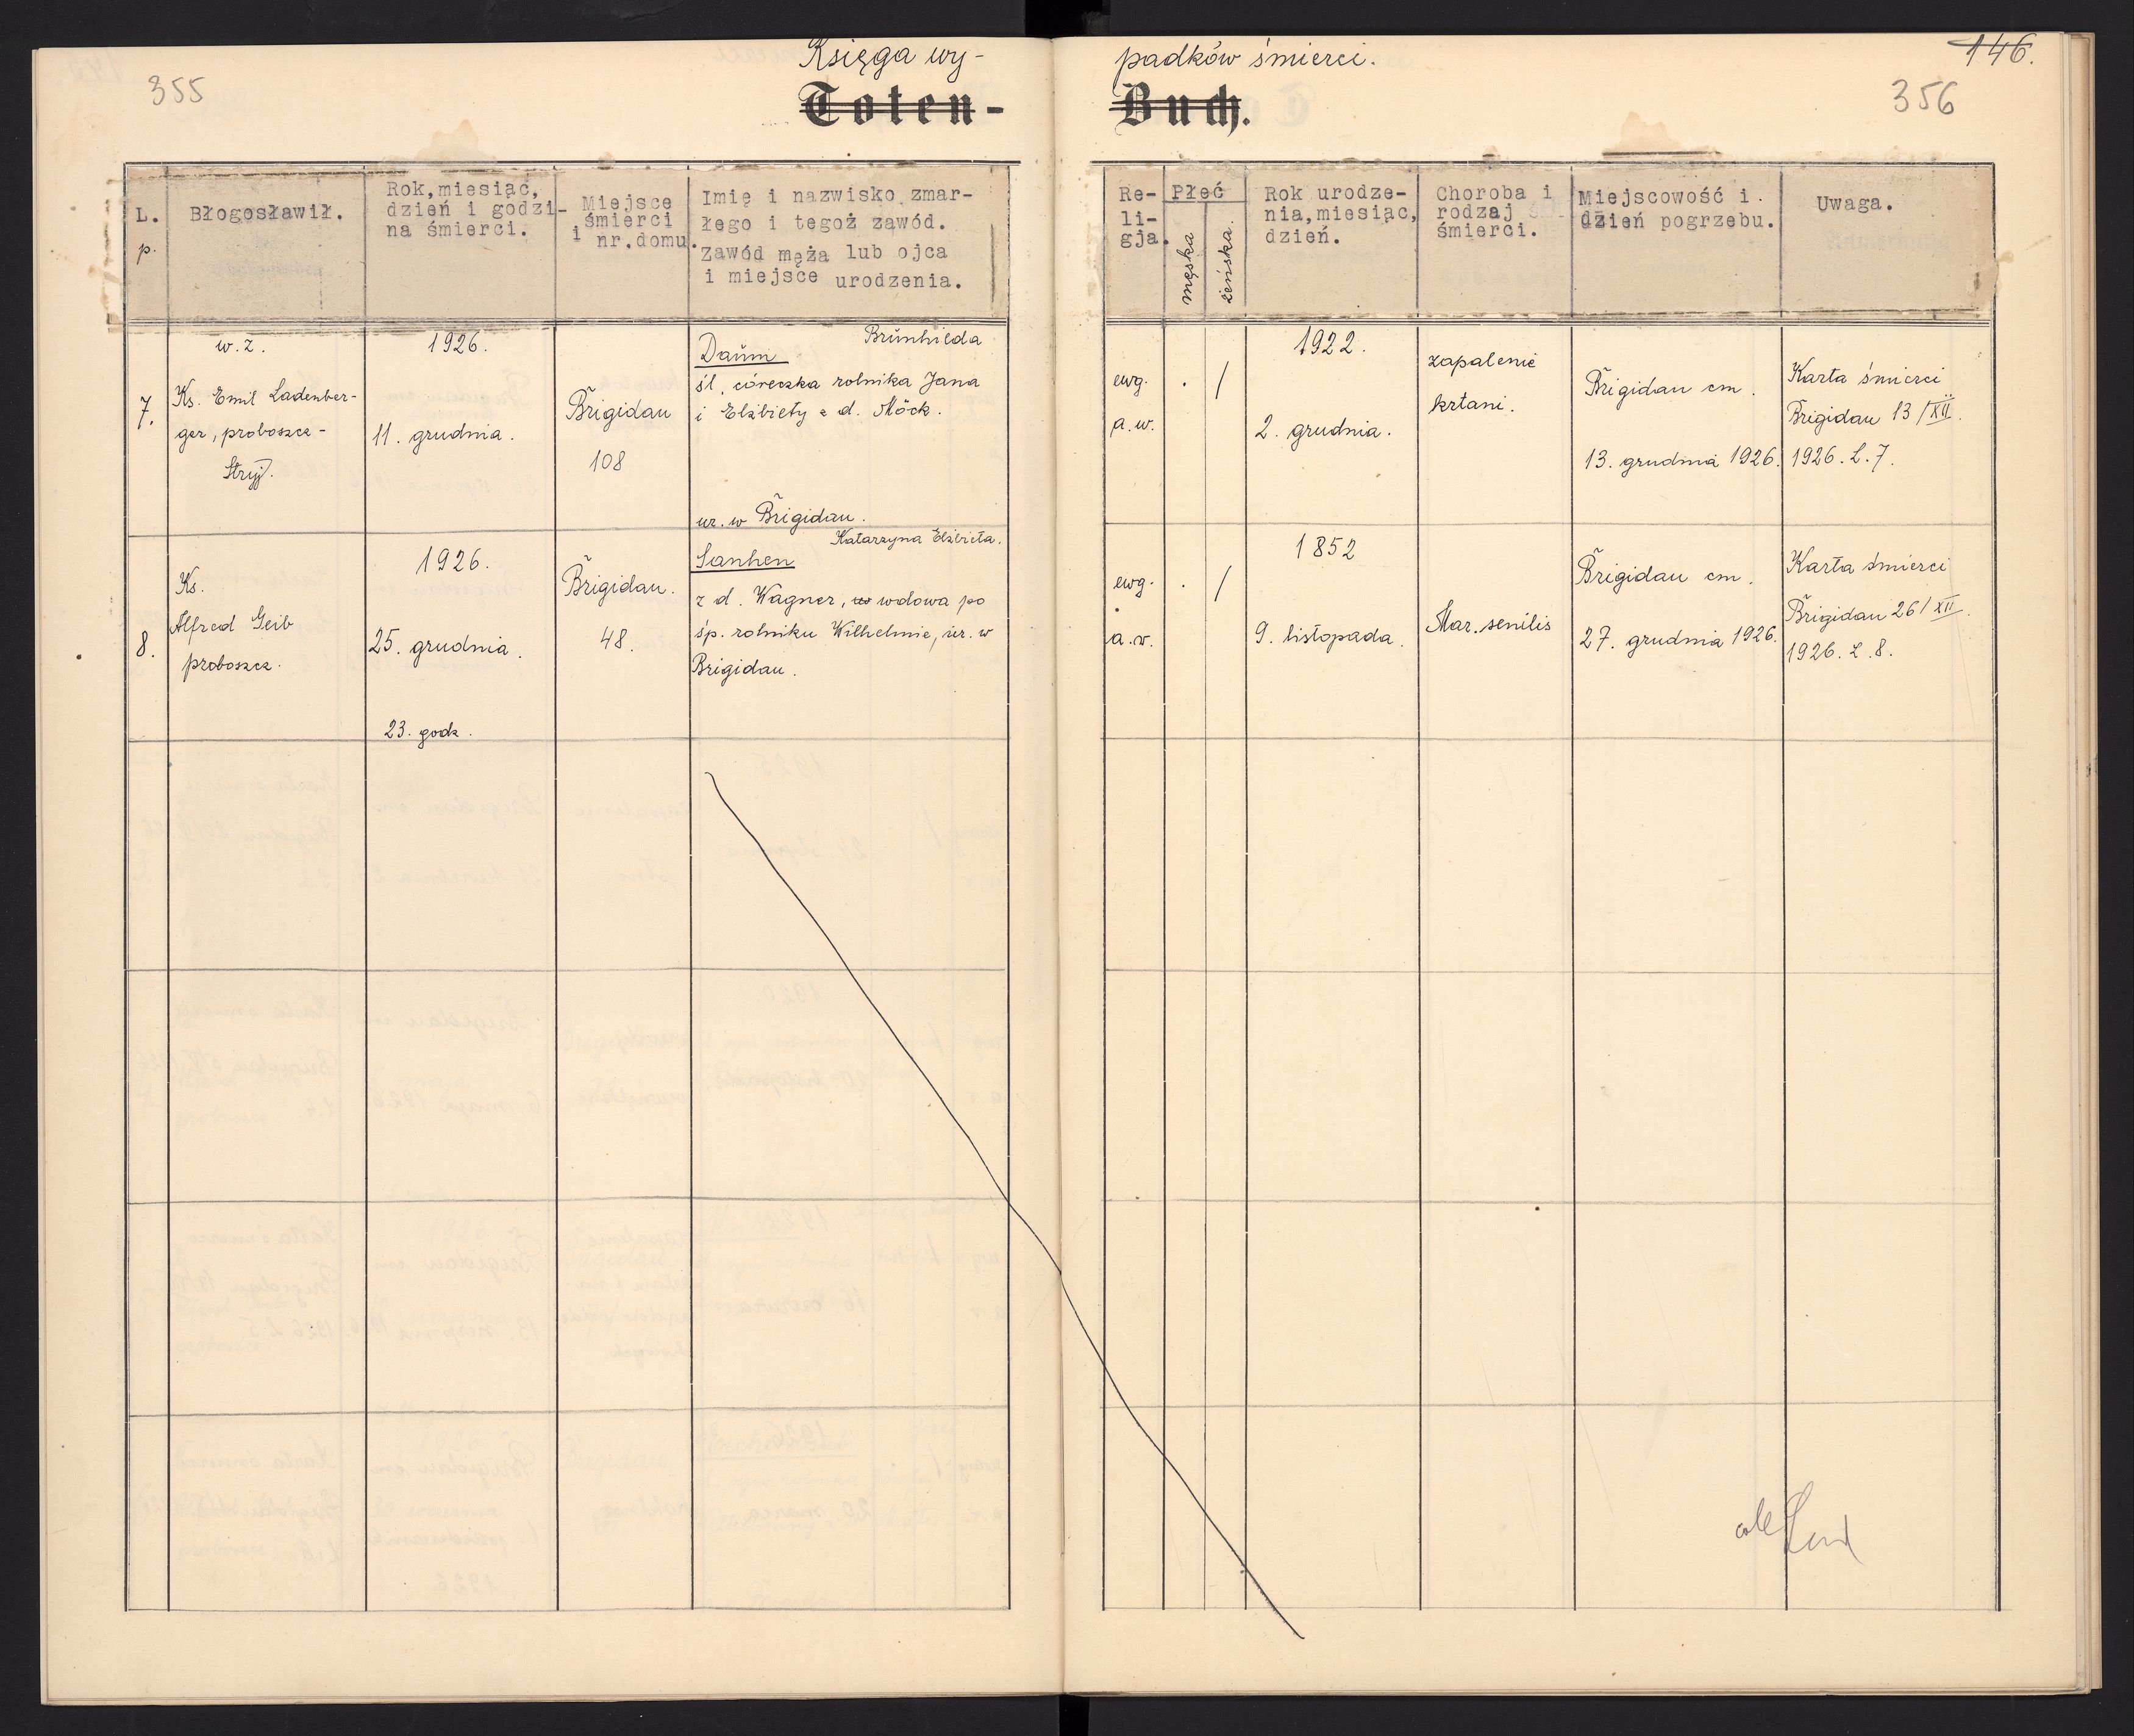 355
Księga wy-
Toten-
padków śmierci.
Buch.
146.
356
L.
p.
Błogosławił.
Rok,miesiąc,
dzień i godzi-
na śmierci.
Miejsce
śmierci
i nr.domu.
Imię i nazwisko zmar-
łego i tegoż zawód.
Zawód męża lub ojca
i miejsce urodzenia.
Re-
li-
gja.
Płeć
męska
żeńska.
Rok urodze-
nia,miesiąc,
dzień.
Choroba i
rodzaj
śmierci.
Miejscowość i
dzień pogrzebu.
Uwaga.
7.
w. z.
Ks. Emil Ladenber-
ger, proboszcz -
Stryj.
1926.
11. grudnia.
Brigidau
108
Brunhilda
Daum
śl. córeczka rolnika Jana
i Elżbiety z d. Möck.
ur. w Brigidau.
ewg.
a.w.
. /
1922.
2. grudnia.
zapalenie
krtani.
Brigidau cm.
13. grudnia 1926.
Karta śmierci
Brigidau 13/XII.
1926. L. 7.
8.
Ks.
Alfred Geib
proboszcz.
1926.
25. grudnia.
23. godz.
Brigidau.
48.
Katarzyna Elżbieta.
Sanhen
z d. Wagner, wdowa po
śp. rolniku Wilhelmie, ur. w
Brigidau.
ewg.
a.w.
. /
1852
9. listopada.
Mar. senilis
Brigidau cm.
27. grudnia 1926.
Karta śmierci
Brigidau 26/XII.
1926. L. 8.